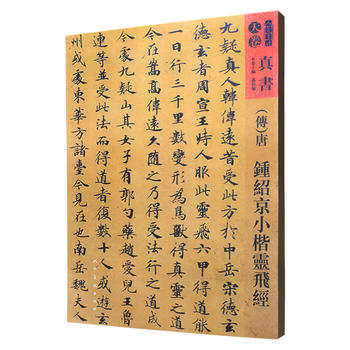 大卷
真書
(傳)唐 鍾紹京小楷靈飛經
九疑真人韓偉遠昔受此方於中岳宋德玄
德玄者周宣王時人服此靈飛六甲得道能
一日行三千里數變形為鳥獸得真靈之道
今在嵩高偉遠久隨之乃得受法行之道成
今處九疑山其女子有郭勺藥趙愛兒王魯
連等並受此法而得道者復數十人或遊玄
州或處東華方諸臺今見在也南岳魏夫人
人民美術出版社